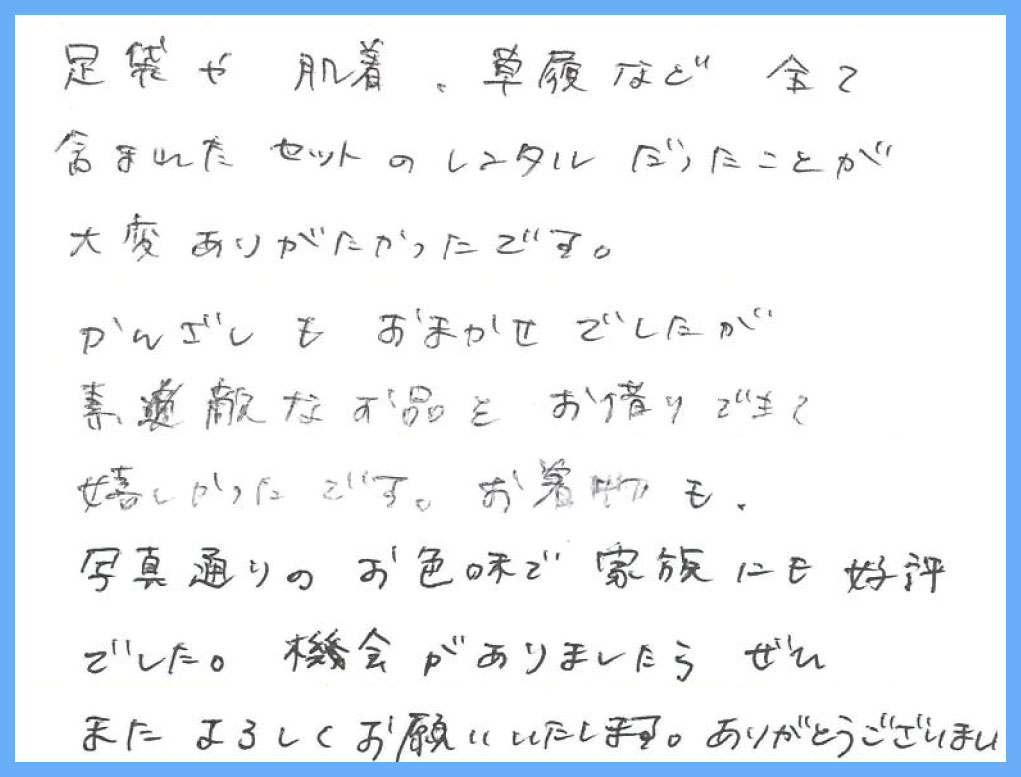 足袋や 肌着、草履など 全て
含まれた セットの レンタル だったことが
大変 ありがたかったです。
かんざしも おまかせ でしたが
素敵なお品を お借りできて
嬉しかったです。お着物も、
写真通りの お色味で 家族にも 好評
でした。機会が ありましたら ぜひ
また よろしく お願いいたします。ありがとうございまし